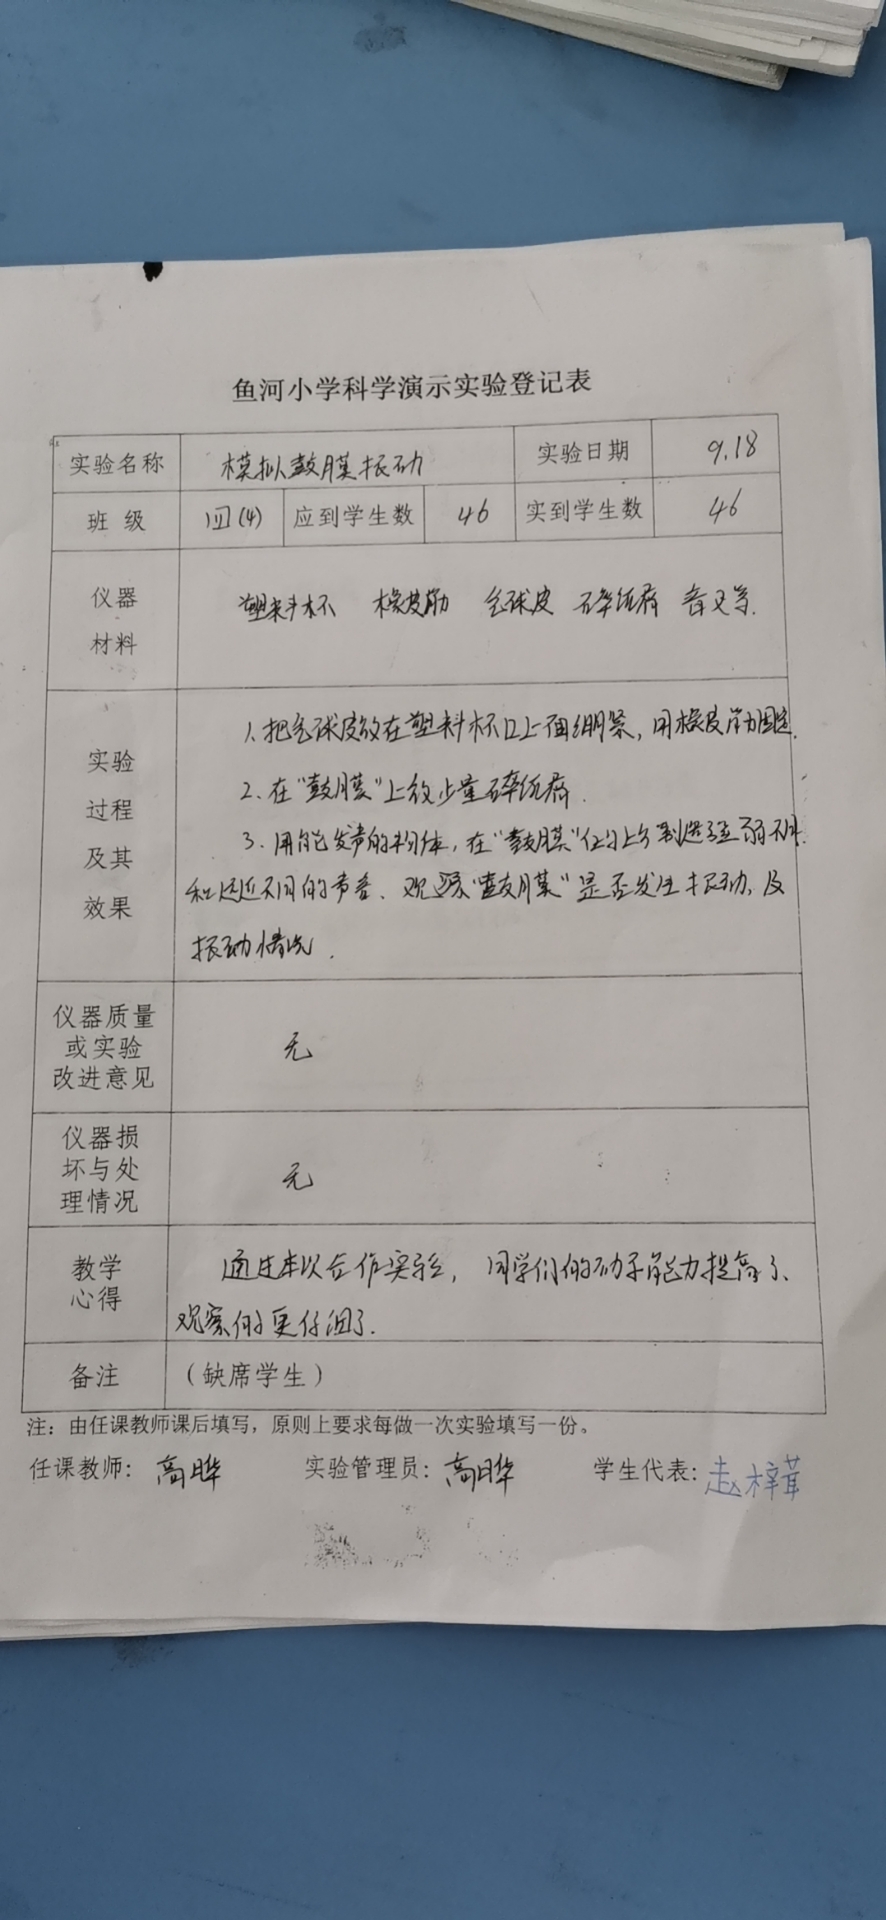 鱼河小学科学演示实验登记表
实验名称 模拟鼓膜振动 实验日期 9.18
班 级 四(4) 应到学生数 46 实到学生数 46
仪器
材料
塑料杯 橡皮筋 气球皮 碎纸屑 音叉等.
实验
过程
及其
效果
1、把气球皮放在塑料杯口上面绷紧,用橡皮筋固定.
2、在“鼓膜”上放少量碎纸屑.
3、用能发声的物体,在“鼓膜”的上方制造强弱不同
和远近不同的声音、观察“鼓膜”是否发生振动,及
振动情况.
仪器质量
或实验
改进意见
无
仪器损
坏与处
理情况
无
教学
心得
通过本次合作实验,同学们的动手能力提高了、
观察的更仔细了.
备注 (缺席学生)
注:由任课教师课后填写,原则上要求每做一次实验填写一份。
任课教师:高晔 实验管理员:高晔 学生代表:赵梓茸